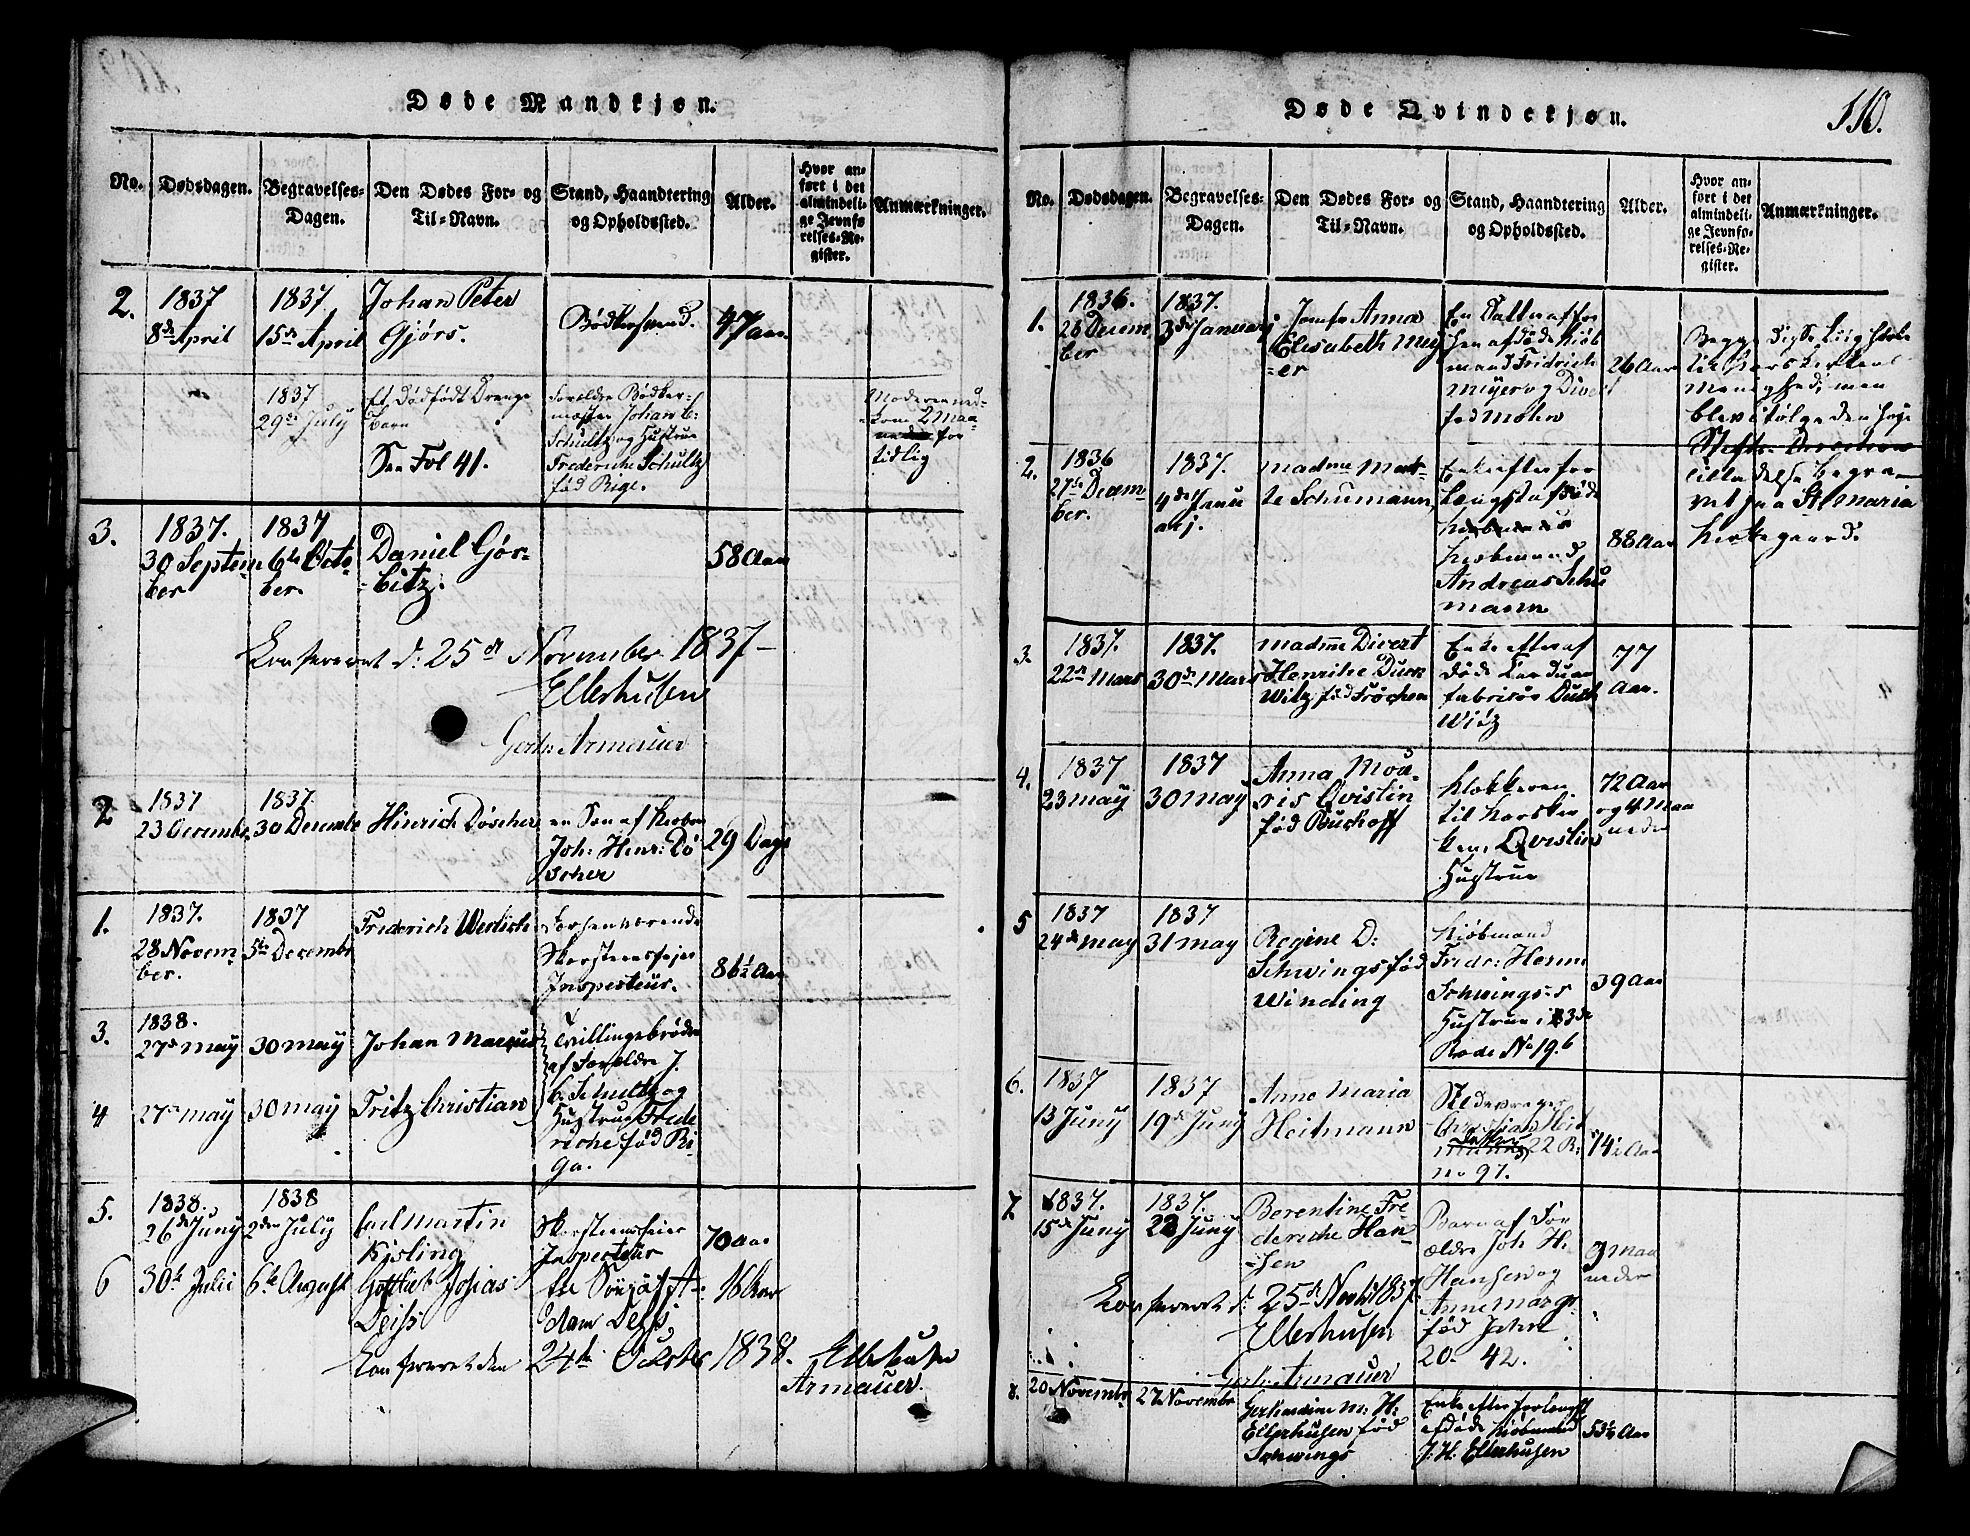 Døde Mandkjøn.
No.
Dødsdagen.
Begravelses-
Dagen.
Den Dødes For- og
Til-Navn.
Stand, Haandtering
og Opholdssted.
Alder.
Hvor an-
ført i det
almindeli-
ge Jevnfø-
relses-Re-
gister.
Anmærkninger.
2.
1837
8de April
1837.
15de April
Johan Peter
Gjørs.
Bødkersvend.
47 Aar
1837
29de July
Et dødfødt Drenge
Barn
See Fol 41.
Forældre Bødker-
mester Johan C.
Schultz og Hustrue
Frederiche Schultz
fød Rige.
Moderen ned-
kom 2 Maa-
neder for
tidlig
3.
1837.
30 Septem-
ber
1837
6te Octo-
ber.
Daniel Gør-
bitz.
58 Aar
Konfereret d: 25de November 1837
Ellerhusen
Gerh. Armauer
2
1837
23 Decembr
1837.
30 Decembr
Hinrich Døscher
en Søn af Kiøbm
Joh: Henr: Dø
scher
29 Dage
1.
1837.
28 Novem-
ber.
1837
5te Decembr
Friderich Werlich
Forhenværende
Skorsteensfejer
Inspecteur.
86½ Aar
3.
1838.
27de May
30 May
Johan Marcus
Tvillingebrødre
af Forældre J.
C. Schultz og
Hustrue Frede
riche fød Ri-
ga.
4
27de May
30 May
Fritz Christian
5.
1838.
26de Juny
1838
2den July
Carl Martin
Kisling
Skorsteensfeier
Inspecteur
70 Aar
6
30te Julii
6te August
Gottlieb Josias
Deiss
16 Aar
Konfereret den 24de October 1838. Ellerhusen
Armauer.
Døde Qvindekjøn.
110.
No.
Dødsdagen.
Begravelses-
Dagen.
Den Dødes For- og
Til-Navn.
Stand, Haandtering
og Opholdssted.
Alder.
Hvor an-
ført i det
almindeli-
ge Jevnfø-
relses-Re-
gister.
Anmærkninger.
1.
1836.
28 Decem
ber
1837.
3de Januarj
Jomfr Anna
Elisabeth Mey
er
En Datter af for
hen afdøde Kiøb
mand Fridrich
Meÿer og Divert
fød Mohn
26 Aar
Begge disse Liig hørte
til Korskirkens
Menighed, men
blev ifølge den høie
Stifts-Direction
tilladelse begra-
vet paa St Maria
Kirkegaard.
2.
1836
27de Decem
ber.
1837.
4de Janu
arj.
Madme Mar-
te Schumann,
Enke efter for
længst afdøde
Kiøbmand
Andreas Schu
mann
88 Aar
3.
1837.
22de Mars
1837.
30de Mars
Madme Divert
Henriche Duck
witz fød Frøchen
Enke efter af
døde
fabrikør Duck
witz
77
Aar.
4.
1837
23 May
1837
30 May
Anna Mou-
ris Qvislin
fød Buchoff
Klokkeren
til Korskir
ken, Qvislins
Hustrue
72 Aar
og 4 Maa
neder
5
1837
24de May
1837
31 May
Regine D:
Schwings fød
Winding
Kiøbmand
Fride: Herm
Schwings's
Hustrue i 23de
Rode No 19.6
39 Aar
6.
1837
13 Juny
1837
19de Juny
Anne Maria
Heitmann
Christian Heit
22 R:
no 97.
74½ Aar
7.
1837.
15de Juny
1837.
22 Juny
Berentine Fre
deriche Han-
sen
Barn af For
ældre Joh H.
Hansen og
Anne Margr.
fød Jahn
20. 42.
3 Maa
neder
Konfereret d: 25de Novbr 1837.
Ellerhusen
Gerh. Armauer
8.
20 Novembr
27 Novembr
Gerhardine M: H:
Ellerhusen fød
Schwings
Enke efter forlængst
afdøde Kiøbmand
J: H: Ellerhusen
53½ Aar